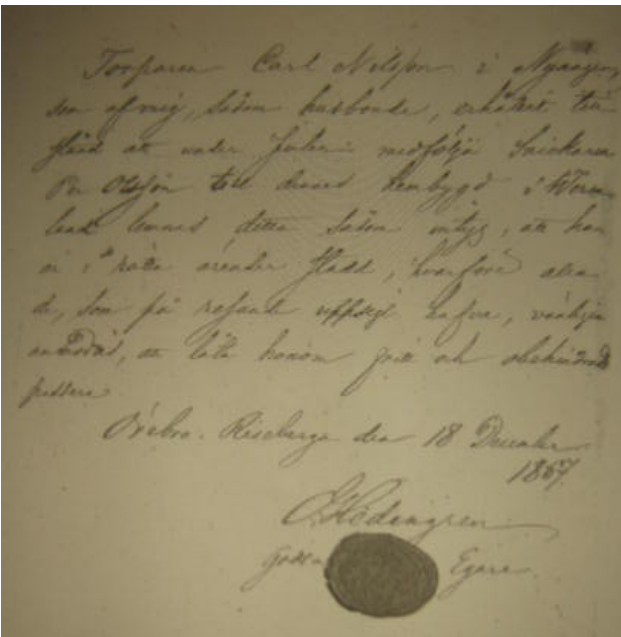 Torparen Carl Nilsson i Nyängen,
som af mig, såsom husbonde, erhållit till-
stånd att under Julen medfölja Snickaren
Per Olsson till dennes hembygd i Werm-
land lemnas detta såsom intyg, att han
är i rätta ärender stadd, hvarföre alla
de, som på resande uppsigt hafva, vänligen
anmodas, att låta honom fritt och obehindradt
passera.
Örebro. Riseberga den 18 December
1867.
C. Hedengren
Godsets Egare